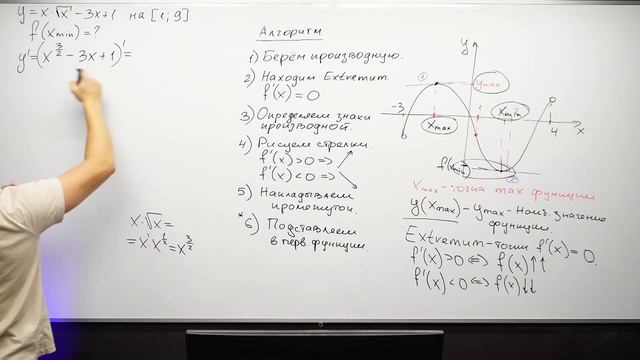 y = x·√x - 3x+1 на [1; 9]
f(xmin) = ?
y' = (x^(3/2) - 3x + 1)' =
x·√x =
= x¹x^(1/2) = x^(3/2)
Алгоритм
1) Берём производную.
2) Находим Extremum.
f'(x) = 0
3) Определяем знаки
производной.
4) Рисуем стрелки.
f'(x) > 0 => ↗
f'(x) < 0 => ↘
5) Накладываем
промежуток.
* 6) Подставляем
в перв. функции.
y
ymax
-3
1
xmin
xmax
4
x
Xmax - точка max функции
y(xmax) - ymax - Наиб. значение
функции.
Extremum - точки f'(x) = 0.
f'(x) > 0 <=> f(x)↑↑
f'(x) < 0 <=> f(x)↓↓